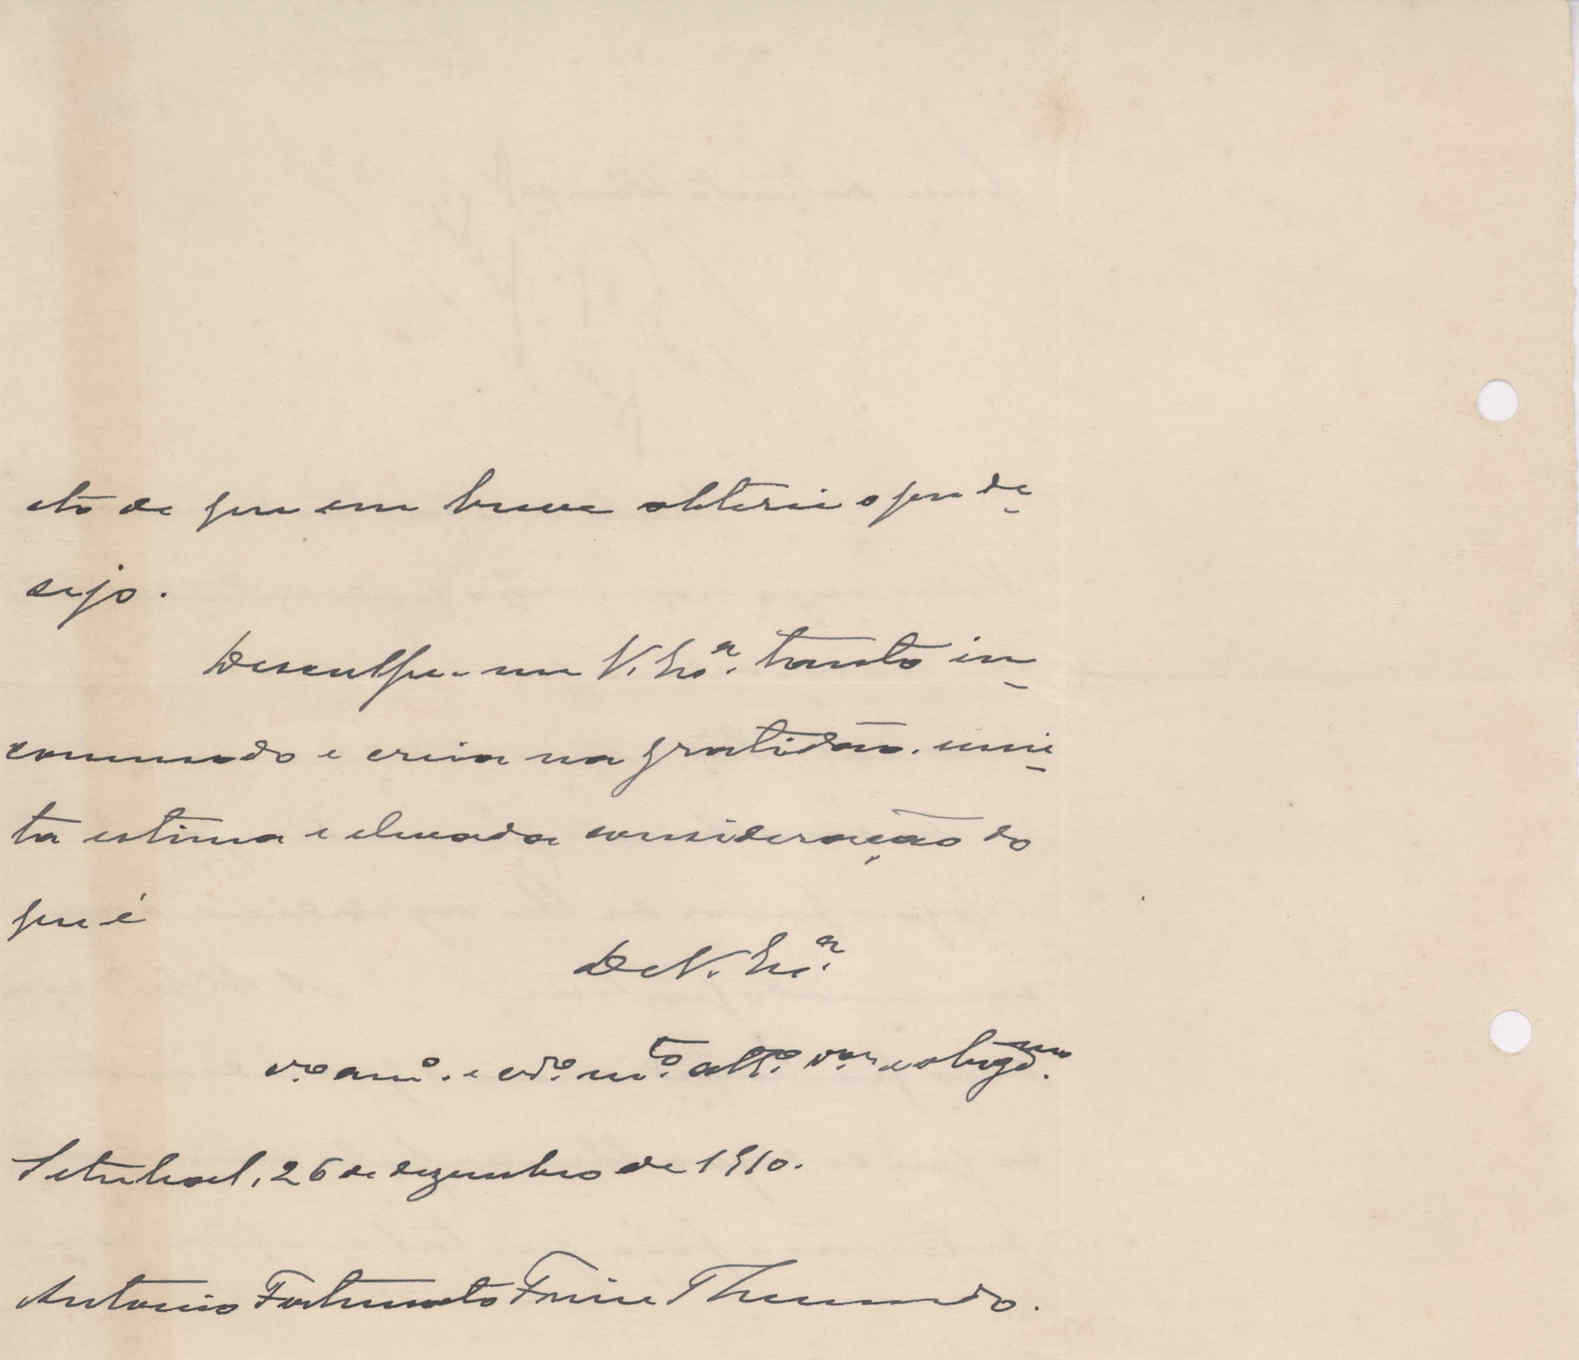 cto de que em breve obterei o que de-
sejo.
Desculpe-me V. Ex.ª tanto in-
commodo e creia na gratidão, mui-
ta estima e elevada consideração do
que é
De V. Ex.ª
v.º am.º e cr.º m.to att.º v.or e obrigd.mo
Setubal, 26 de dezembro de 1910.
Antonio Fortunato Freire Themudo.